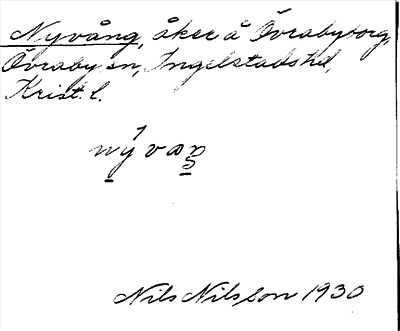 Nyvång, åker å Övrabyborg,
Övraby sn, Ingelstads hd,
Krist. l.
Nils Nilsson 1930